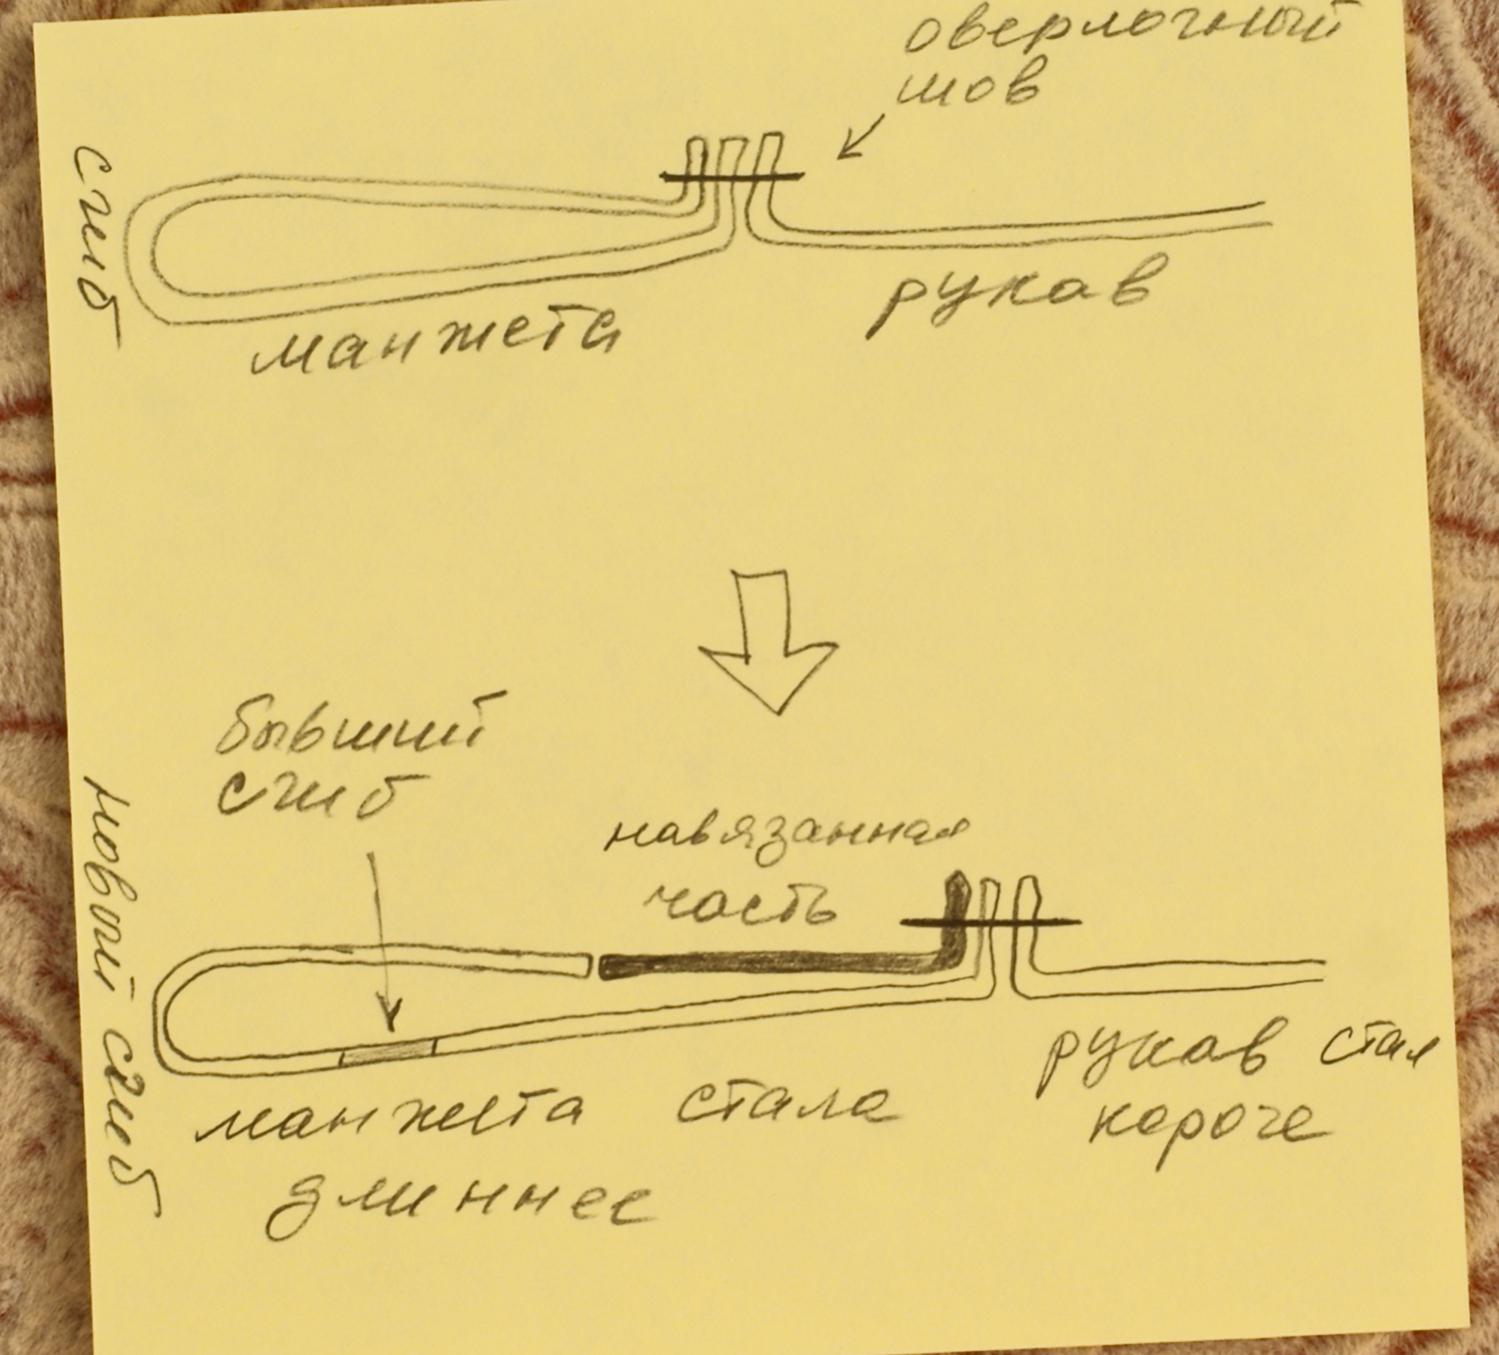 оверлочный
шов
сгиб
манжета
рукав
бывший
сгиб
навязанная
часть
новый сгиб
манжета стала
длиннее
рукав стал
короче